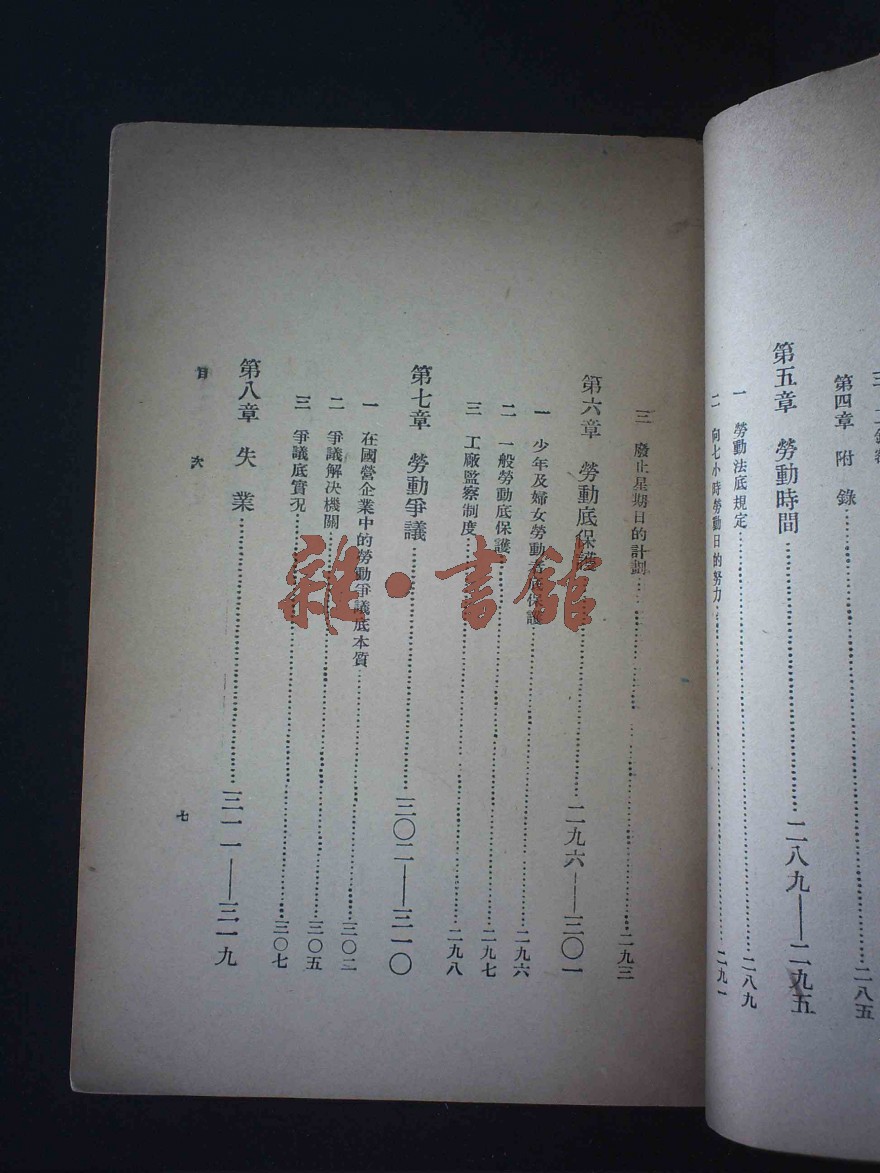 第四章 附錄……二八五
第五章 勞動時間……二八九——二九五
一 勞動法底規定……二八九
二 向七小時勞動日的努力……二九一
三 廢止星期日的計劃……二九三
第六章 勞動底保護……二九六——三〇一
一 少年及婦女勞動者底保護……二九六
二 一般勞動底保護……二九七
三 工廠監察制度……二九八
第七章 勞動爭議……三〇二——三一〇
一 在國營企業中的勞動爭議底本質……三〇二
二 爭議解決機關……三〇五
三 爭議底實况……三〇七
第八章 失業……三一一——三一九
目次 七
雜·書館